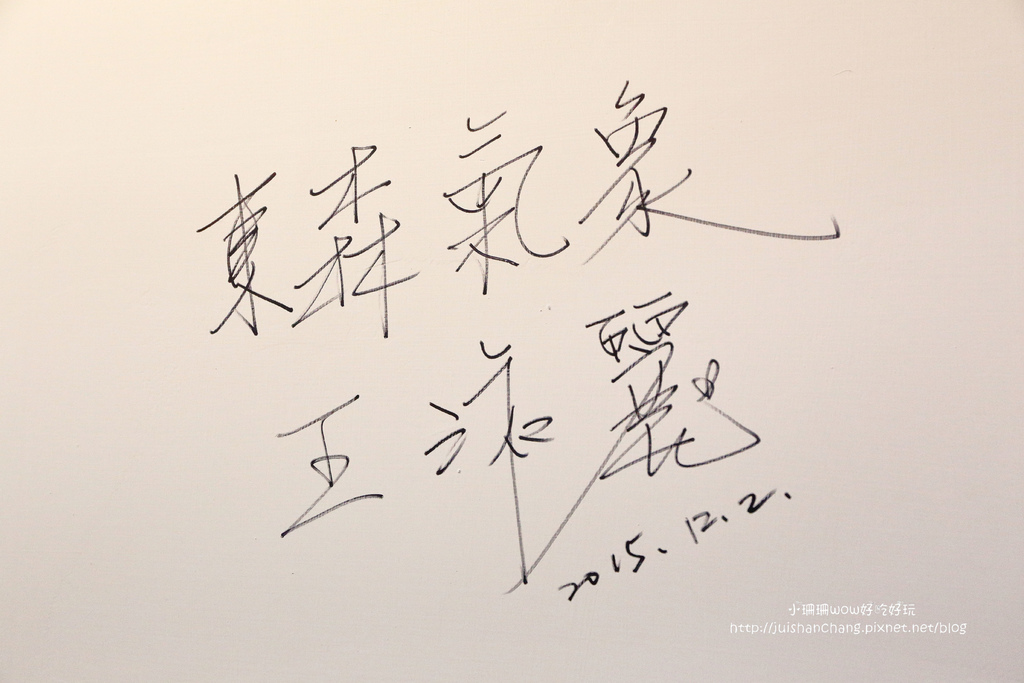 東森氣象
王淑麗
2015.12.2.
小珊珊wow好吃好玩
http://juishanchang.pixnet.net/blog